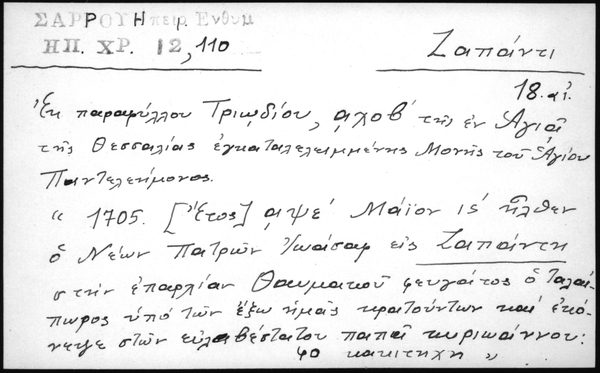 ΣΑΡΡΟΥ Ἠπειρ. Ἐνθυμ
ΗΠ. ΧΡ. 12, 110
Ζαπάντι
18. αἰ.
Ἐκ παραφύλλου Τριῳδίου, αχοβ´ τῆς ἐν Ἁγιᾷ
τῆς Θεσσαλίας ἐγκαταλελειμμένης Μονῆς τοῦ Ἁγίου
Παντελεήμονος.
" 1705. [Ἔτος] αψε´ Μάϊον ις´ ἦλθεν
ὁ Νέων Πατρῶν Ἰωάσαφ εἰς Ζαπάντη
στὴν ἐπαρχίαν Θαυμακοῦ φευγᾶτος ὁ ταλαί-
πωρος ὑπὸ τῶν ἔξω ἡμᾶς κρατούντων καὶ ἐκό-
νεψε στῶν εὐλαβέστατου παπᾶ κυριωάννου:
φο κακιτηχη "